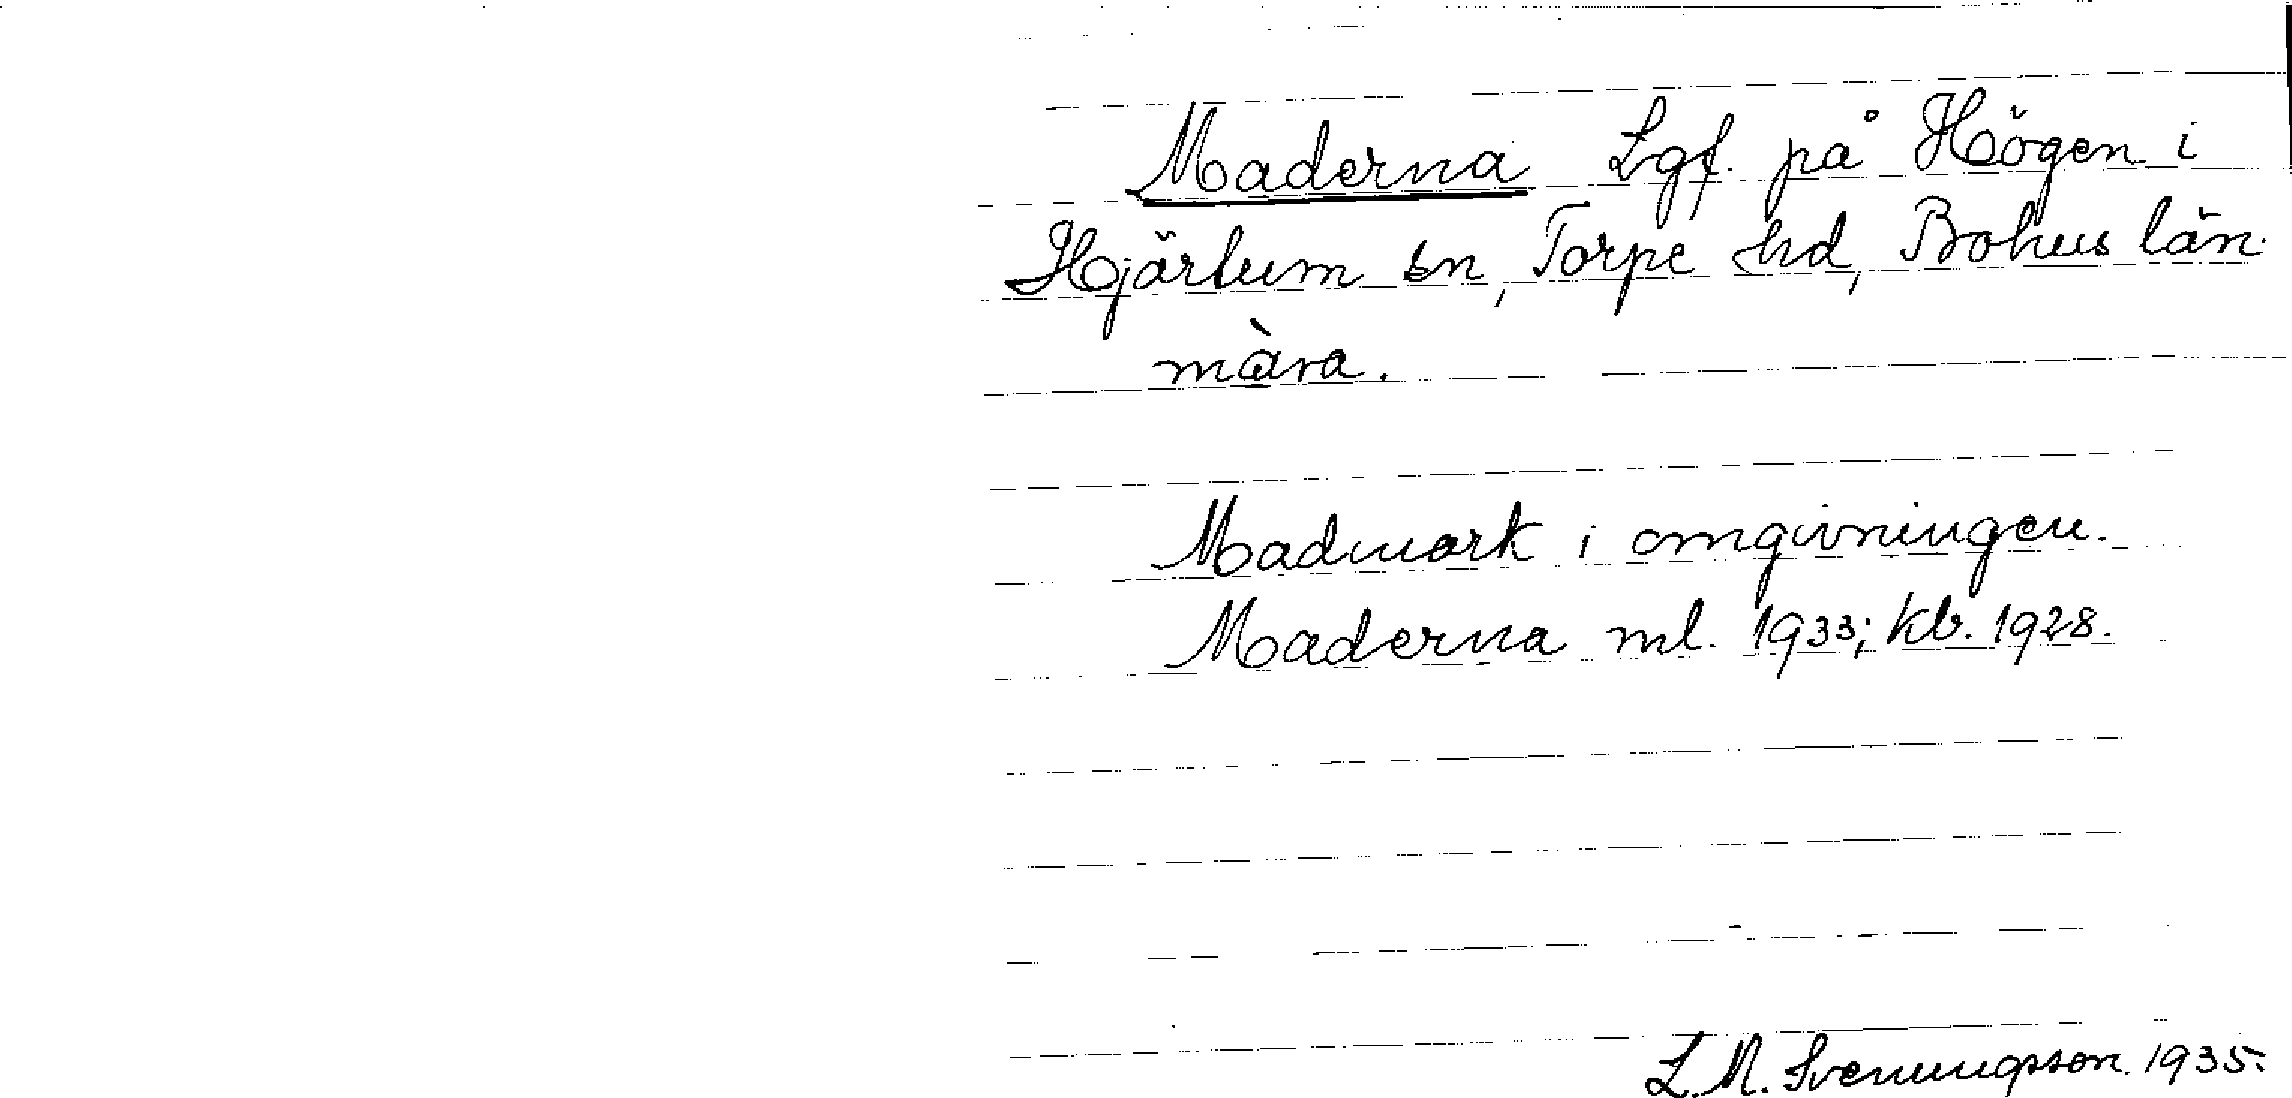 Maderna Lgf. på Högen i
Hjärtum sn, Torpe hd, Bohus län.
màra.
Madmark i omgivningen.
Maderna ml. 1933; kb. 1928.
L.M. Svenungsson 1935.